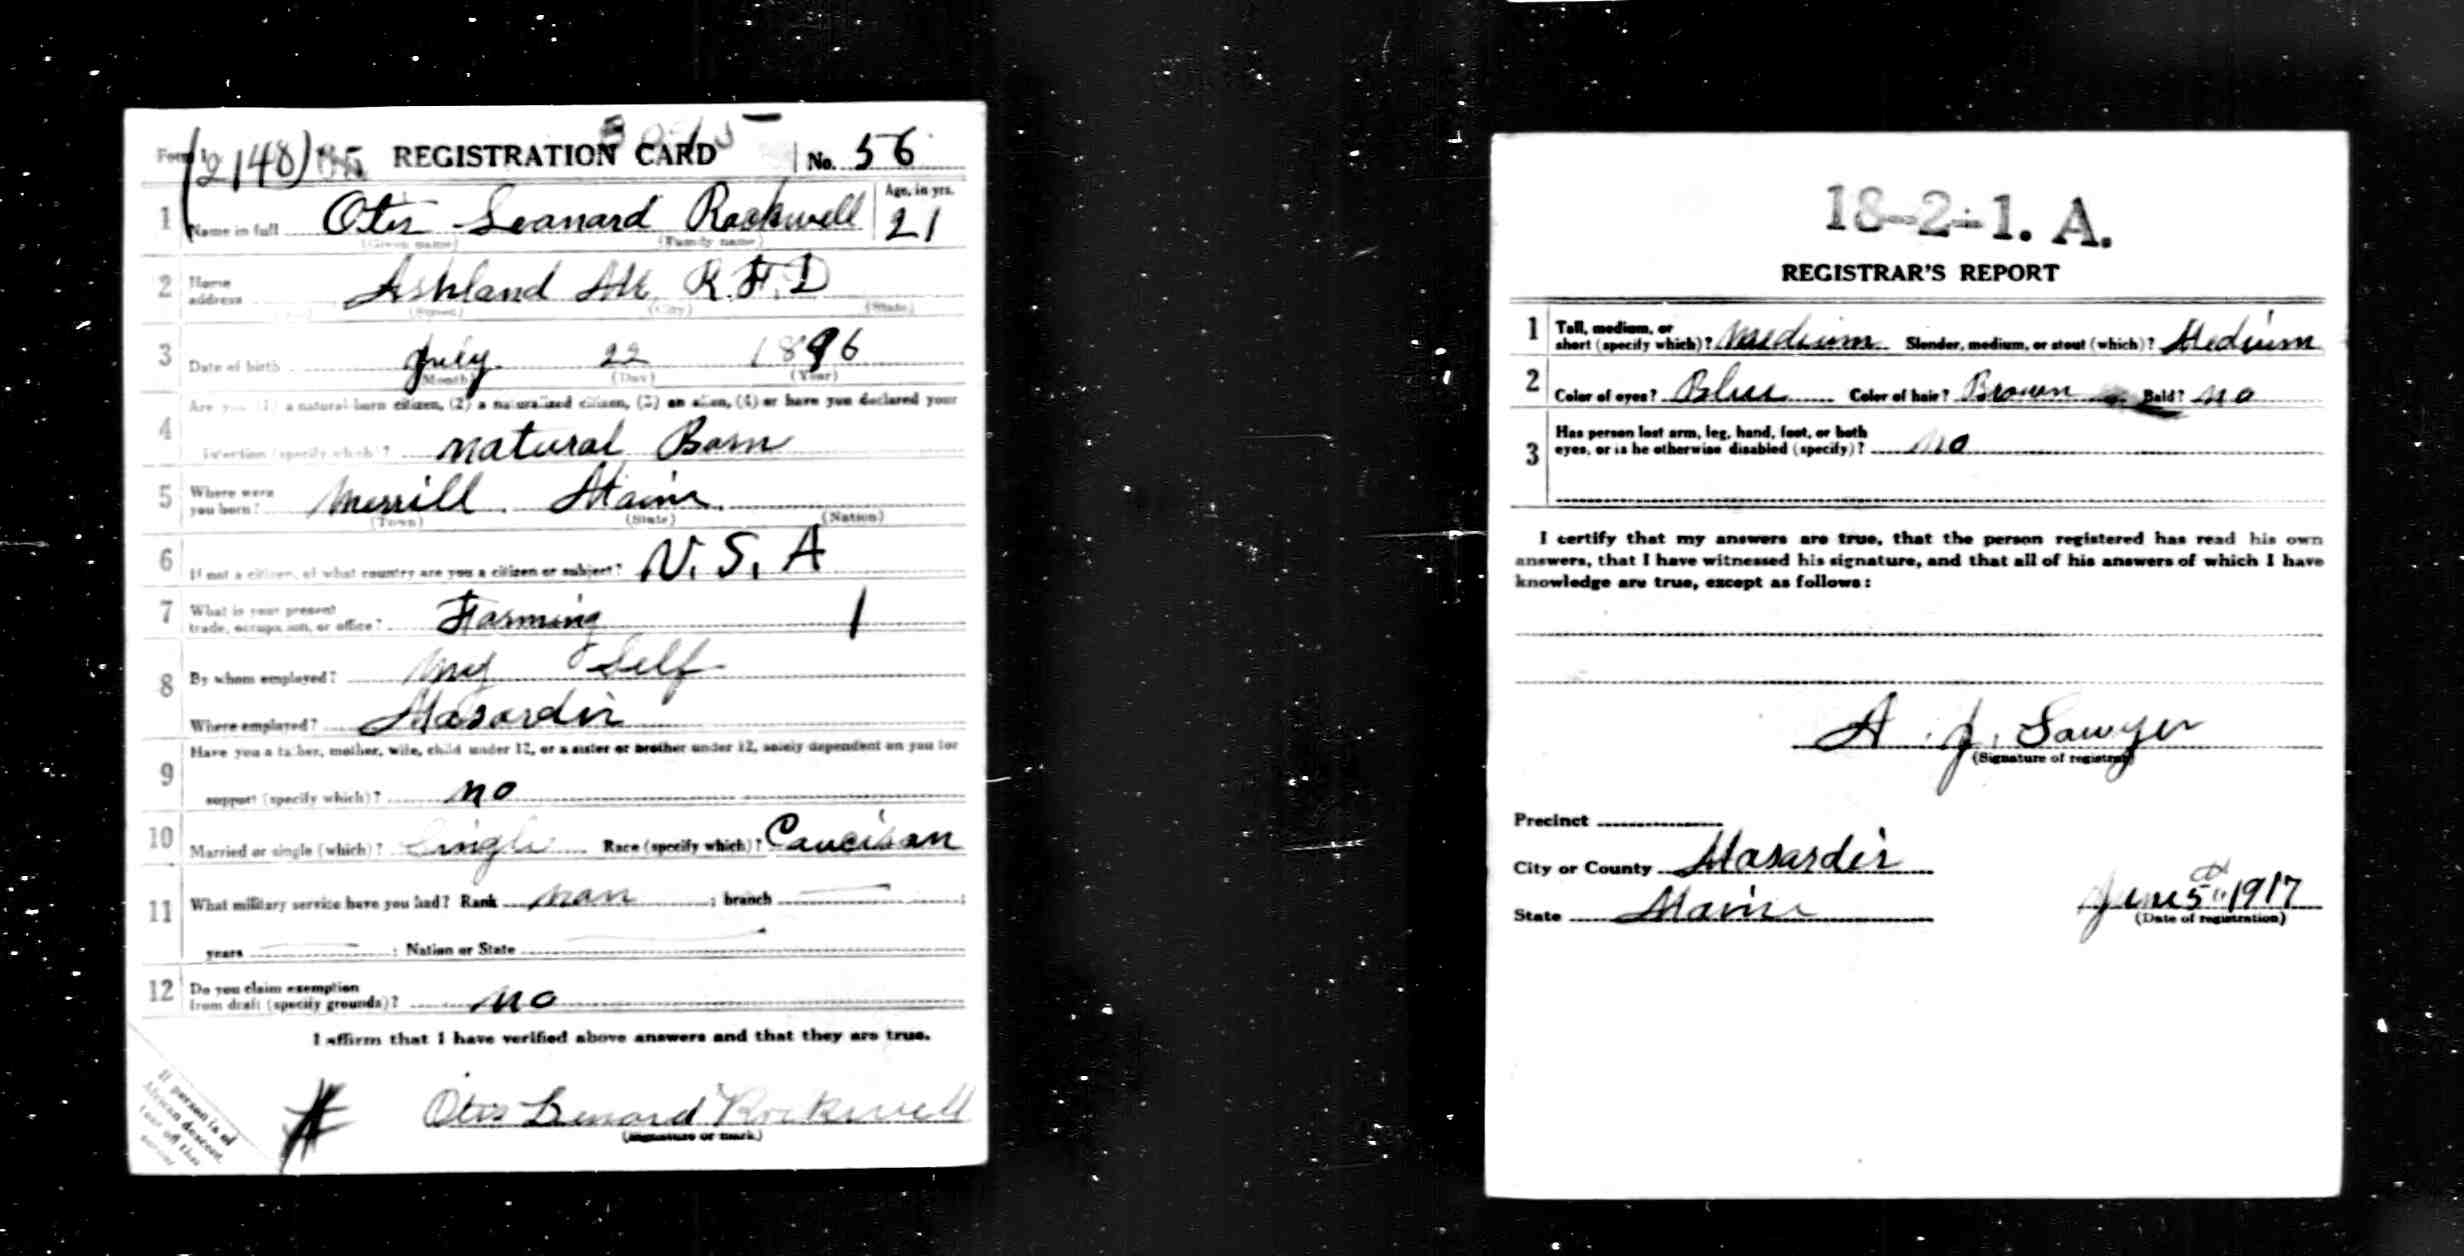 Form 1 (2148) REGISTRATION CARD No. 56
1 Name in full Otis Leanard Rockwell Age, in yrs. 21
(Given name) (Family name)
2 Home address Ashland Me. R.F.D
(Street) (City) (State)
3 Date of birth July 22 1896
(Month) (Day) (Year)
4 Are you (1) a natural-born citizen, (2) a naturalized citizen, (3) an alien, (4) or have you declared your
intention (specify which)? natural Born
5 Where were you born? Merrill Maine
(Town) (State) (Nation)
6 If not a citizen, of what country are you a citizen or subject? U.S.A
7 What is your present trade, occupation, or office? Farming 1
8 By whom employed? My Self
Where employed? Masardis
9 Have you a father, mother, wife, child under 12, or a sister or brother under 12, solely dependent on you for
support (specify which)? no
10 Married or single (which)? Single Race (specify which)? Caucisan
11 What military service have you had? Rank nan ; branch ;
years ; Nation or State
12 Do you claim exemption from draft (specify grounds)? no
I affirm that I have verified above answers and that they are true.
Otis Lenord Rockwell
(Signature or mark)
If person is of
African descent,
tear off this
corner
18-2-1. A.
REGISTRAR'S REPORT
1 Tall, medium, or short (specify which)? Medium Slender, medium, or stout (which)? Medium
2 Color of eyes? Blue Color of hair? Brown Bald? no
3 Has person lost arm, leg, hand, foot, or both
eyes, or is he otherwise disabled (specify)? no
I certify that my answers are true, that the person registered has read his own
answers, that I have witnessed his signature, and that all of his answers of which I have
knowledge are true, except as follows:
A. J. Sawyer
(Signature of registrar)
Precinct
City or County Masardis
State Maine
June 5 1917
(Date of registration)